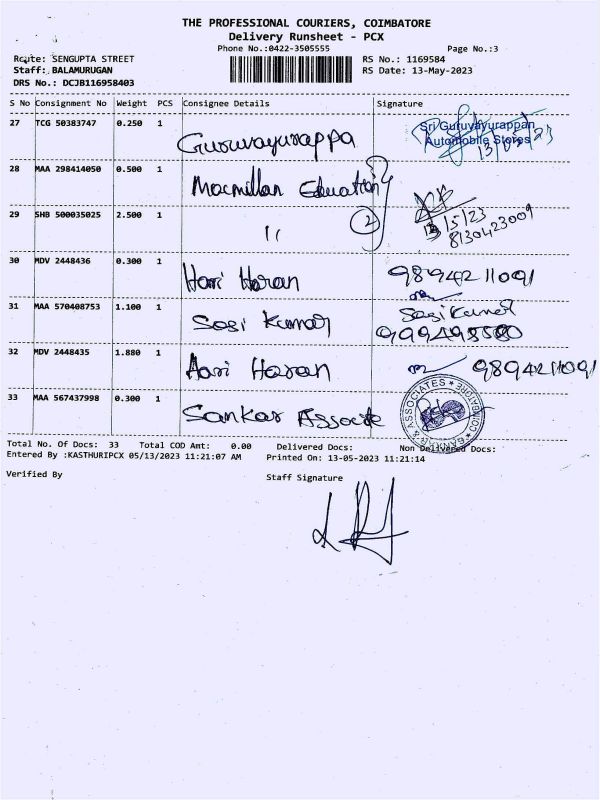 THE PROFESSIONAL COURIERS, COIMBATORE
Delivery Runsheet - PCX
Phone No.:0422-3505555 Page No.:3
Route: SENGUPTA STREET RS No.: 1169584
Staff: BALAMURUGAN RS Date: 13-May-2023
DRS No.: DCJB116958403
S No Consignment No Weight PCS Consignee Details Signature
27 TCG 50383747 0.250 1 Guruvayurappa Sri Guruvayurappan
Automobile Stores
28 MAA 298414050 0.500 1 Macmillan Education
29 SHB 500035025 2.500 1 11 2 13/5/23
8130423009
30 MDV 2448436 0.300 1 Hari Haran 9894211091
31 MAA 570408753 1.100 1 Sasi Kumar Sasi Kumar
32 MDV 2448435 1.880 1 Hari Haran 9894211091
33 MAA 567437998 0.300 1 Sankar Associte & ASSOCIATES COIMBATORE
Total No. Of Docs: 33 Total COD Amt: 0.00 Delivered Docs: Non Delivered Docs:
Entered By :KASTHURIPCX 05/13/2023 11:21:07 AM Printed On: 13-05-2023 11:21:14
Verified By Staff Signature